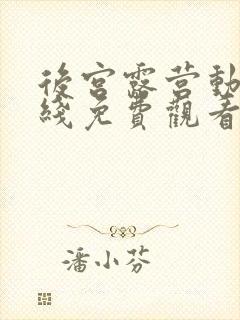 後宮露营動
綫免費觀看
潘小芬